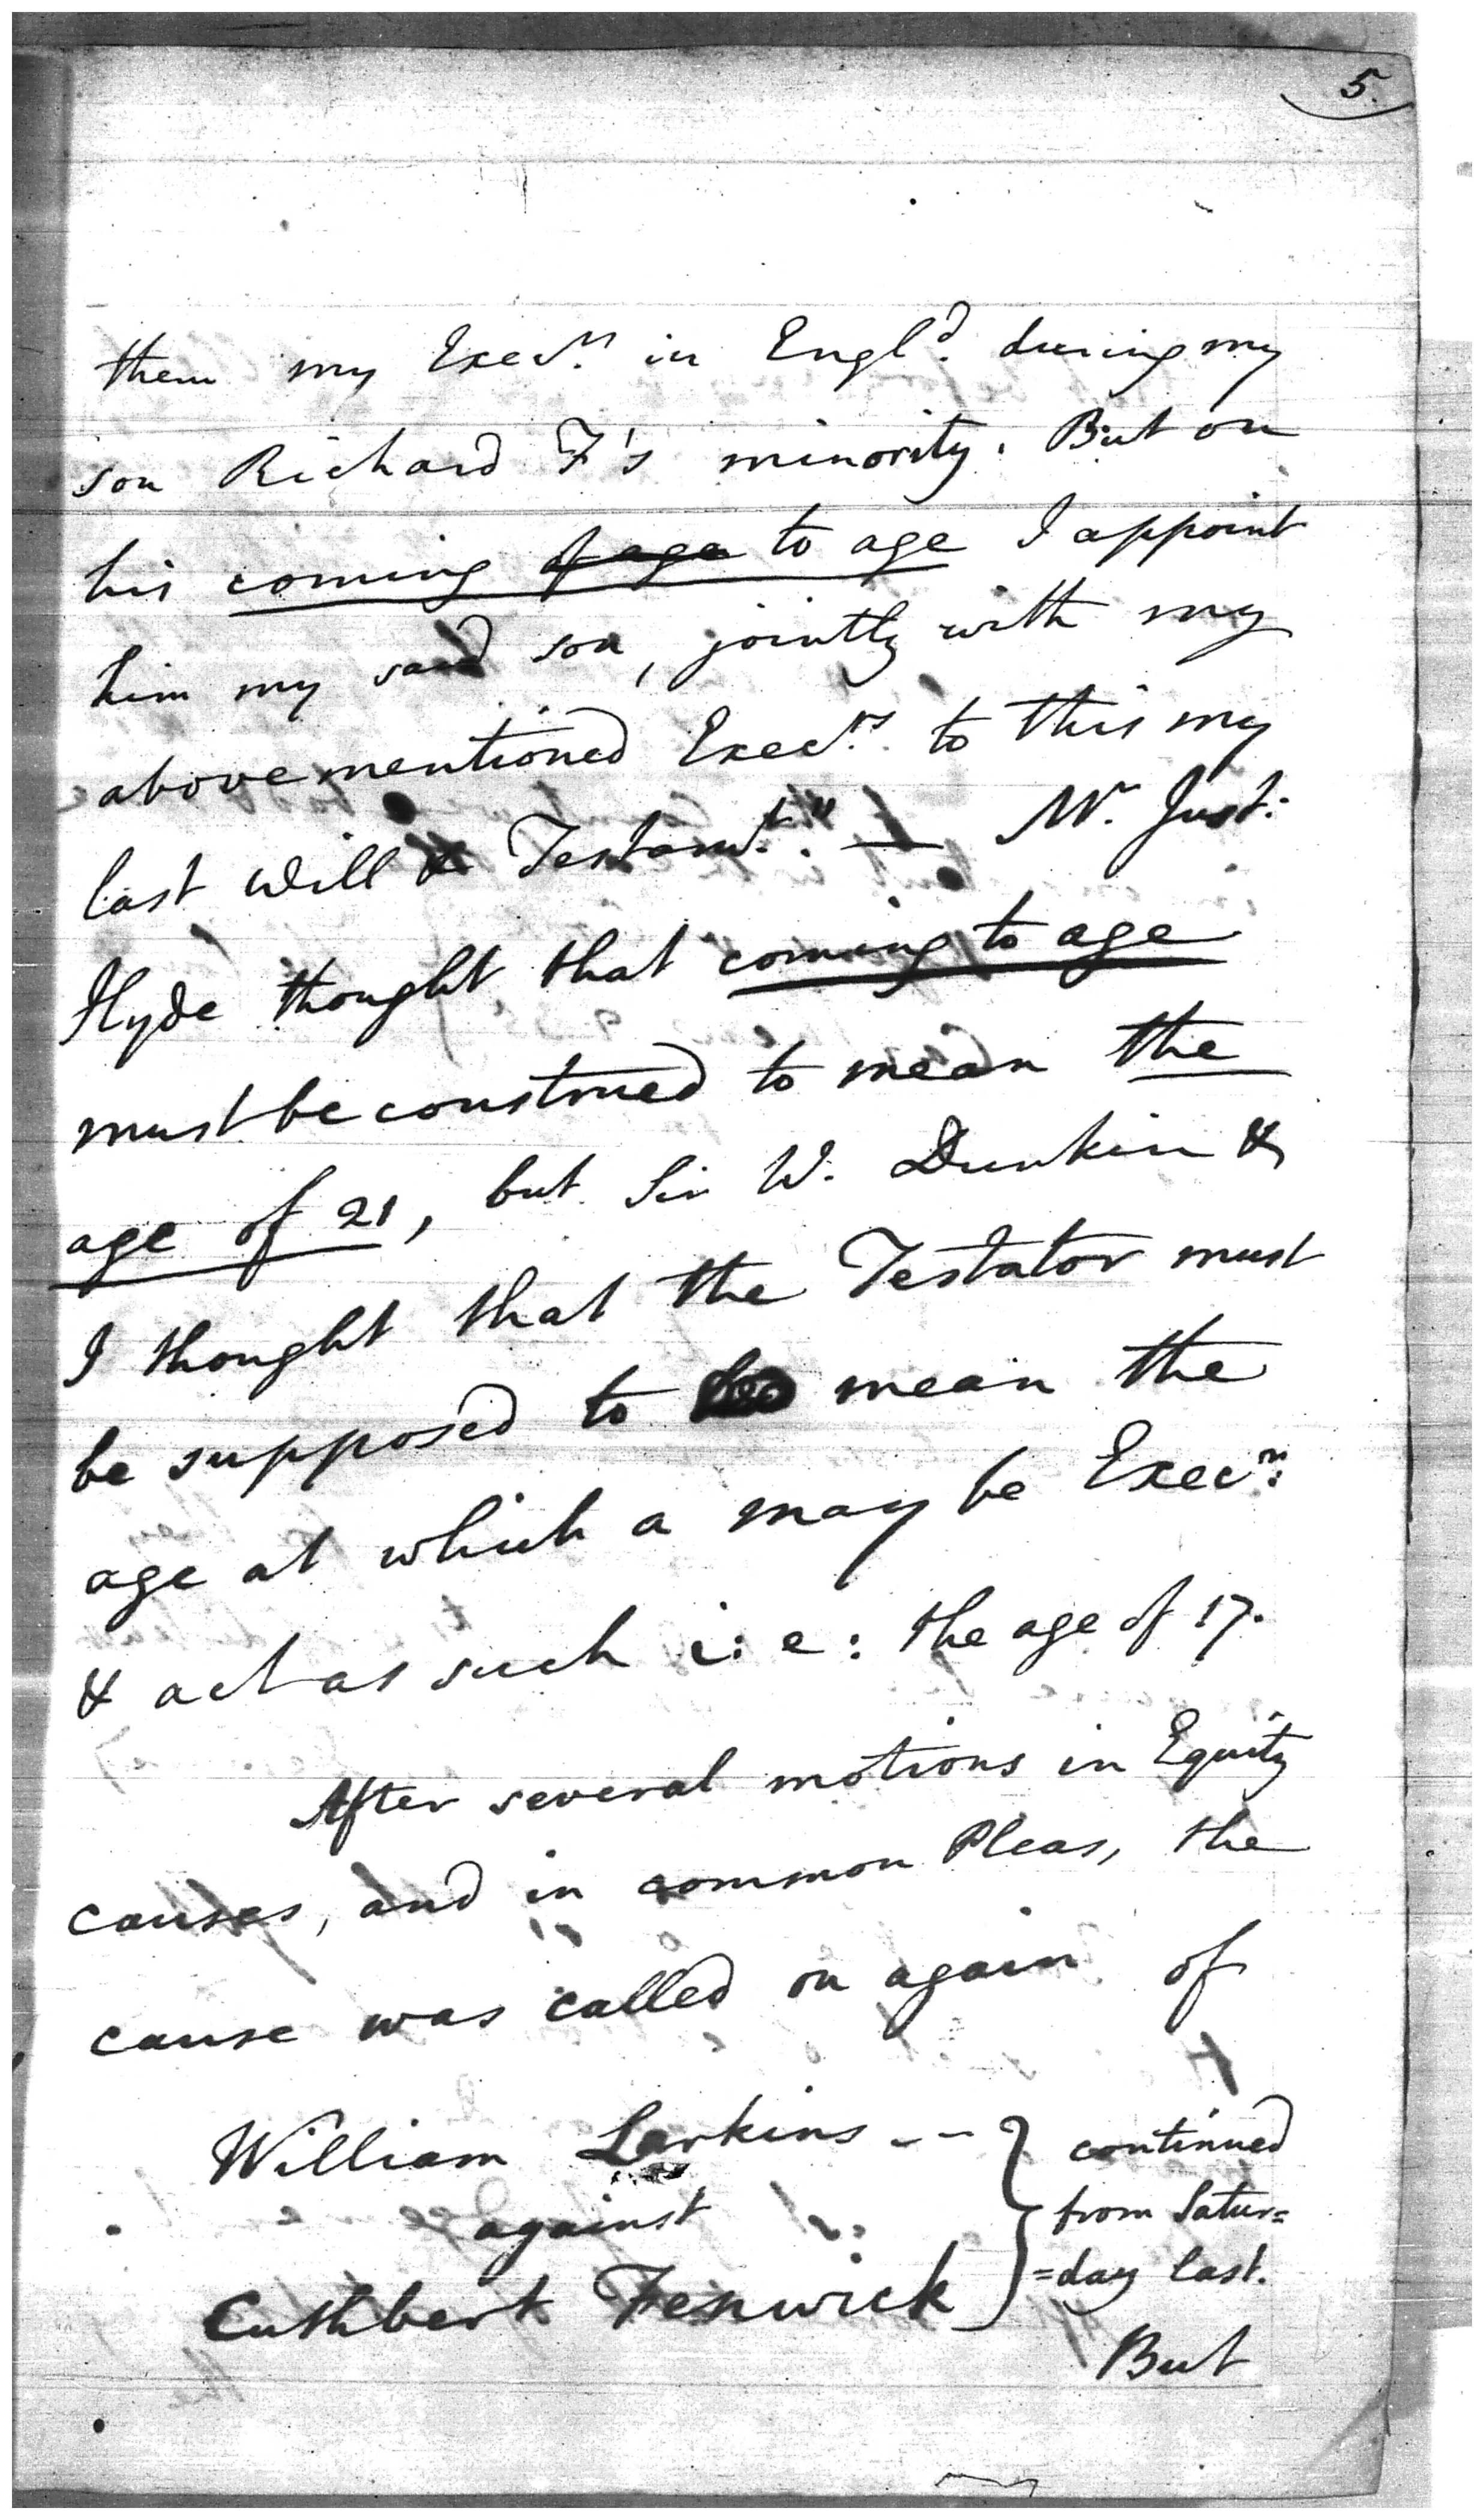 5.
them my Execrs. in Engld. during my
son Richard F's minority. But on
his coming of age to age I appoint
him my said son, jointly with my
abovementioned Execrs. to this my
last will & Testamt." — Mr. Just:
Hyde thought that coming to age
must be construed to mean the
age of 21, but Sir W. Dunkin &
I thought that the Testator must
be supposed to mean the
age at which a may be Execr:
& act as such i: e: the age of 17.
After several motions in Equity
causes, and in common Pleas, the
cause was called on again of
William Larkins -- } continued
against } from Satur=
Cuthbert Fenwick } =day last.
But